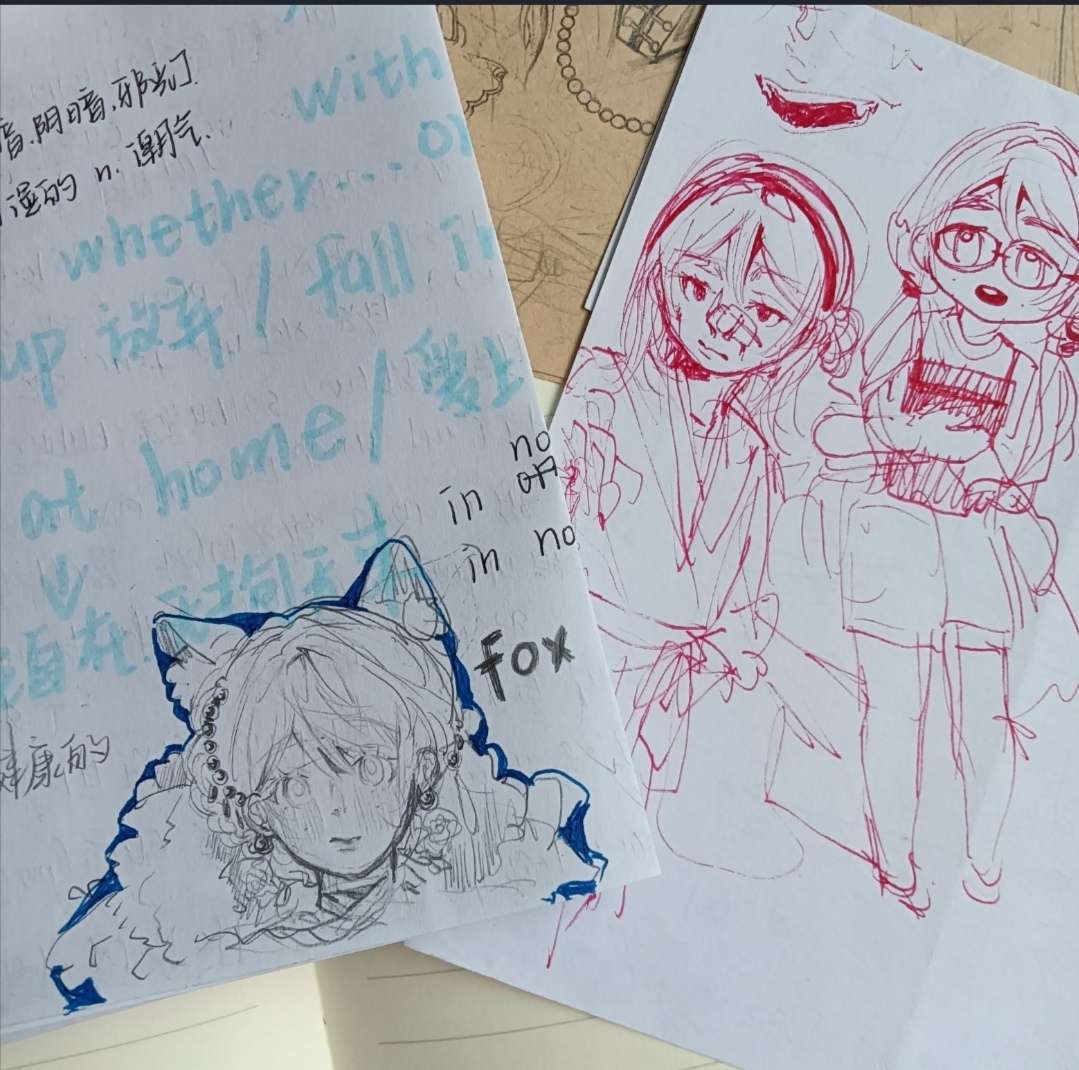 暗.阴暗.邪恶.
湿的 n.潮气.
with
whether... or
up 放弃 / fall in
at home / 爱上
↓
自在
no
in
in no
fox
健康的